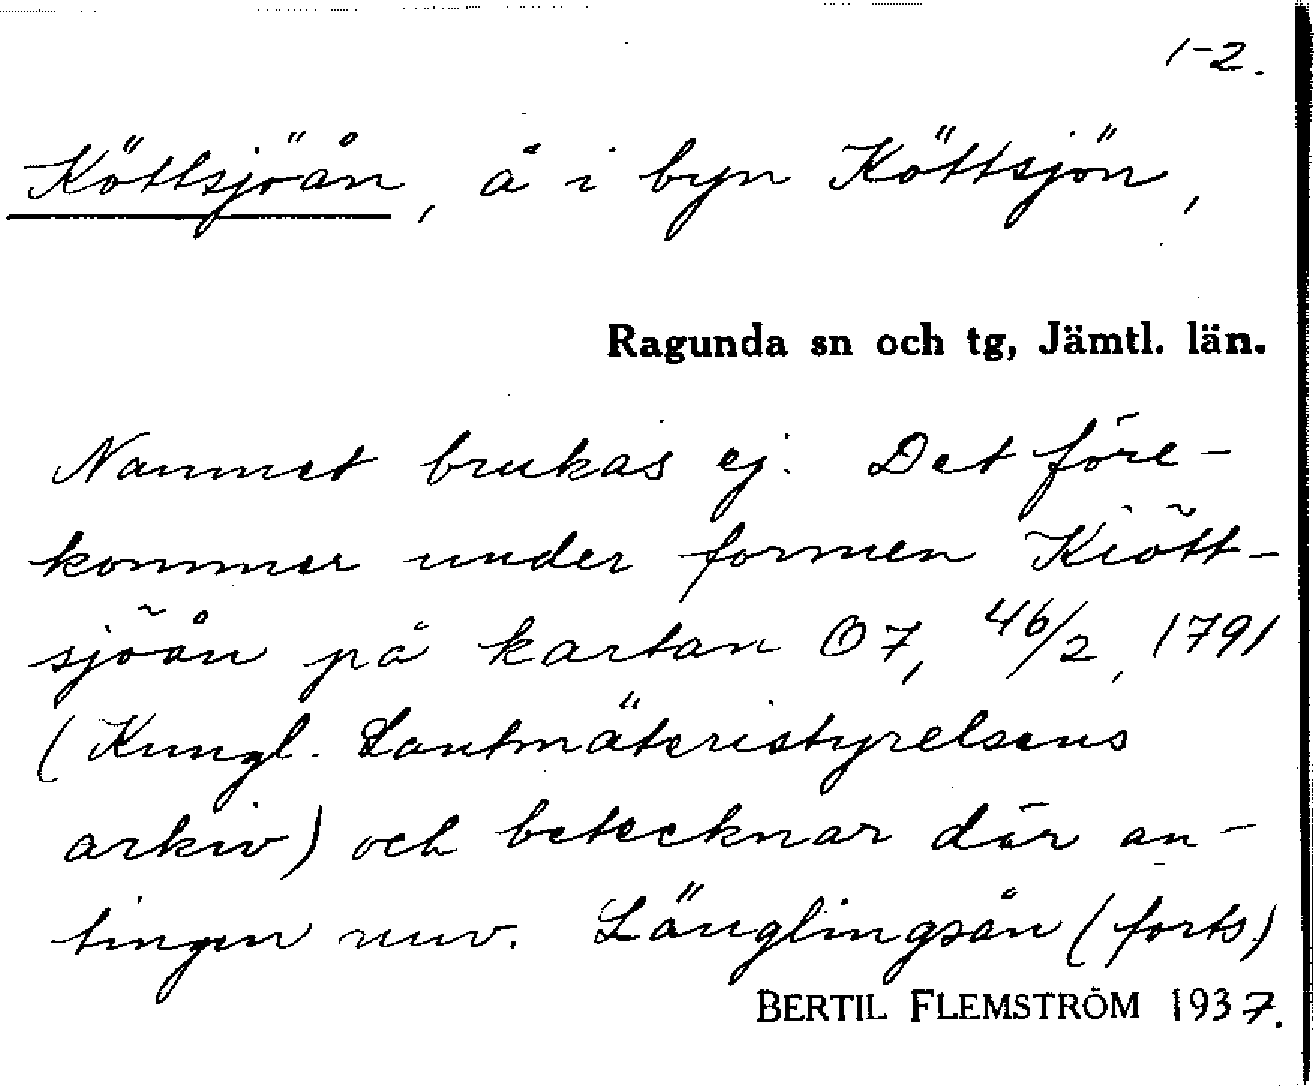 1-2.
Köttsjöån, å i byn Köttsjön,
Ragunda sn och tg, Jämtl. län.
Namnet brukas ej. Det före-
kommer under formen Kiött-
sjöån på kartan O7, 46/2, 1791
(Kungl. Lantmäteristyrelsens
arkiv) och betecknar där an-
tingen nuv. Länglingsån (forts.)
BERTIL FLEMSTRÖM 1937.